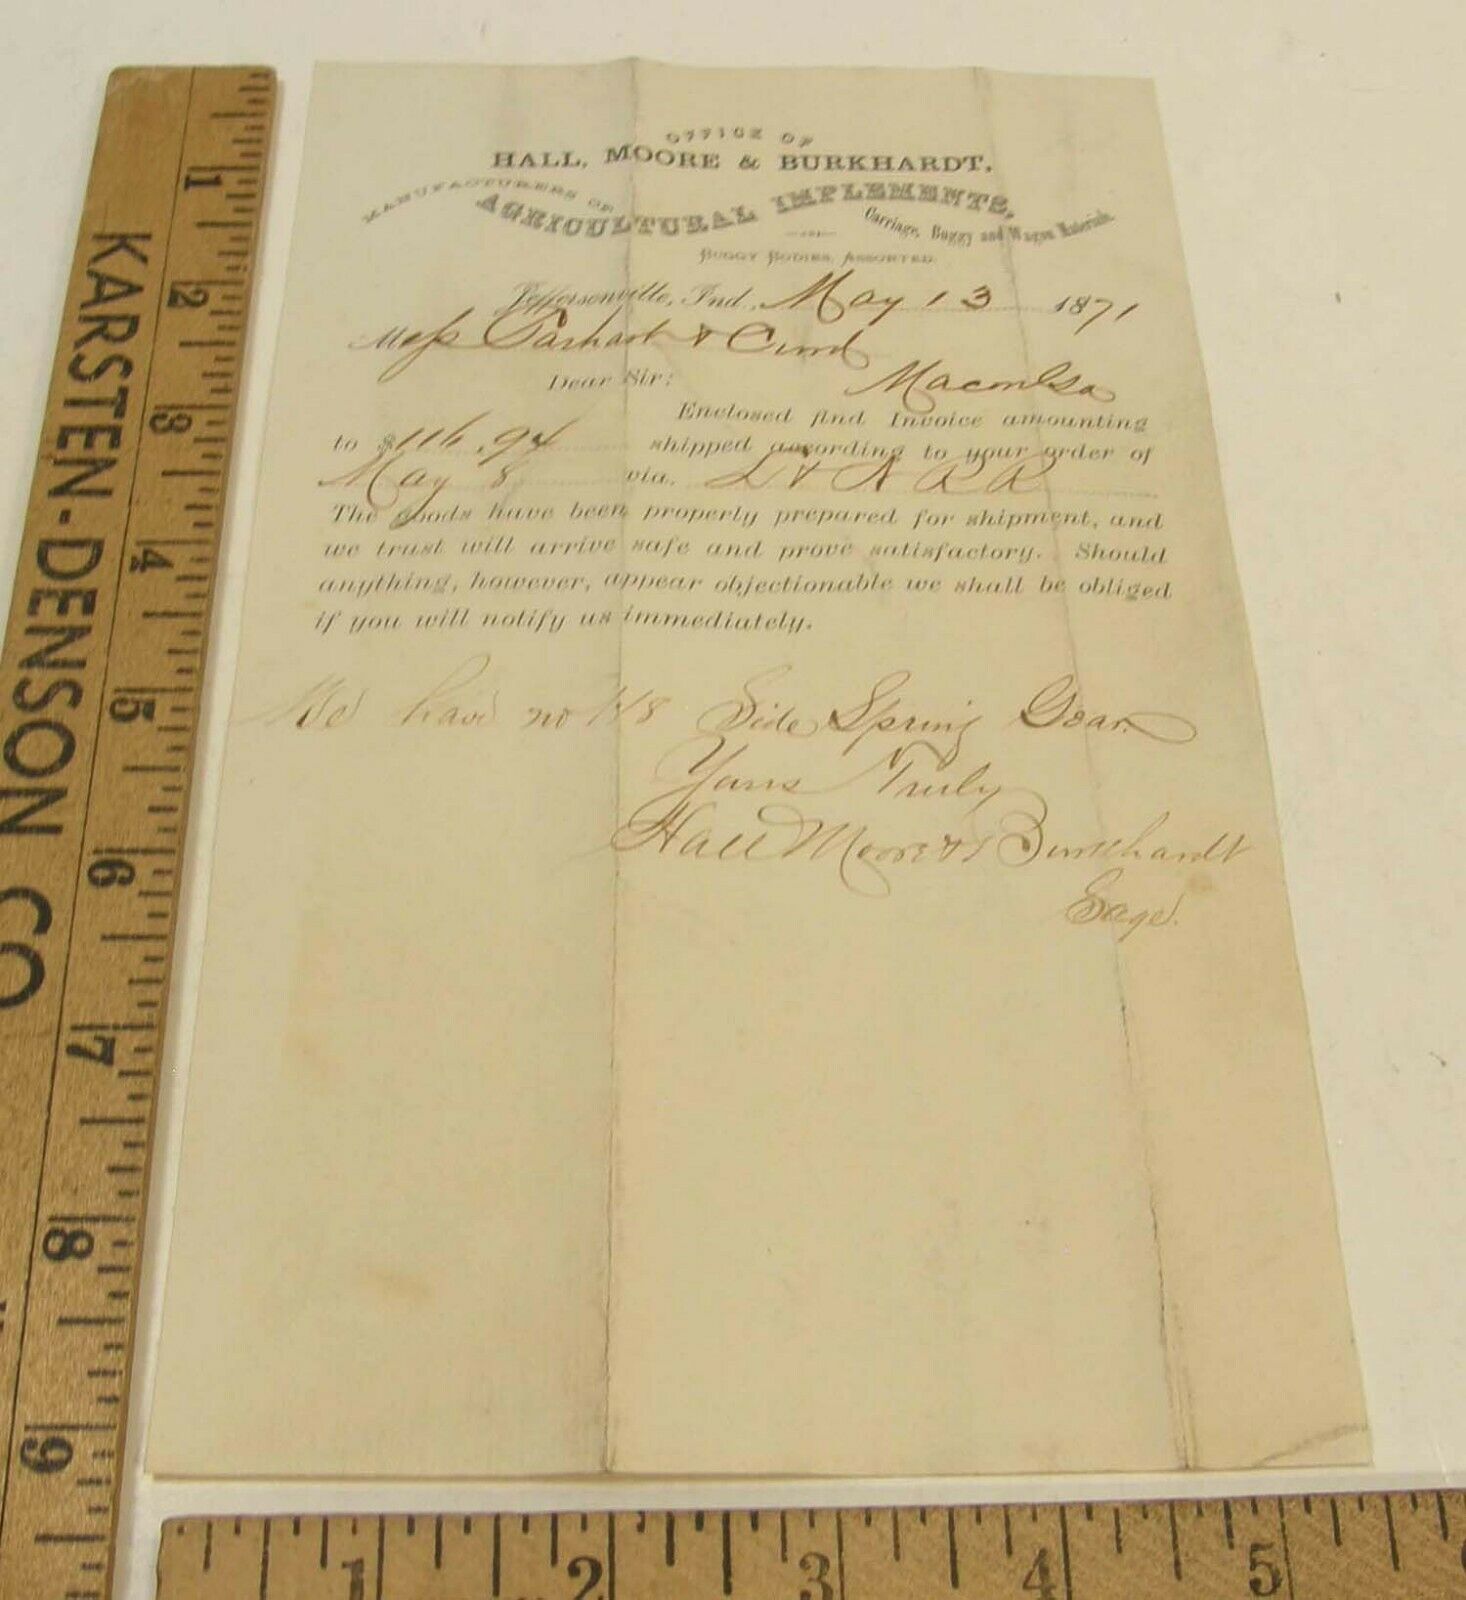 OFFICE OF
HALL, MOORE & BURKHARDT,
MANUFACTURERS OF
AGRICULTURAL IMPLEMENTS,
Carriage, Buggy and Wagon Materials.
BUGGY BODIES, ASSORTED.
Jeffersonville, Ind., May 13 1871
Mess &
Macon Ga
Dear Sir:
Enclosed find Invoice amounting
to $116.94 shipped according to your order of
May 8 via. L & N R R
The goods have been properly prepared for shipment, and
we trust will arrive safe and prove satisfactory. Should
anything, however, appear objectionable we shall be obliged
if you will notify us immediately.
We have no Side Spring Gear.
Yours Truly
Hall Moore & Burkhardt
KARSTEN-DENSON CO
1
2
3
4
5
6
7
8
9
1
2
3
4
5